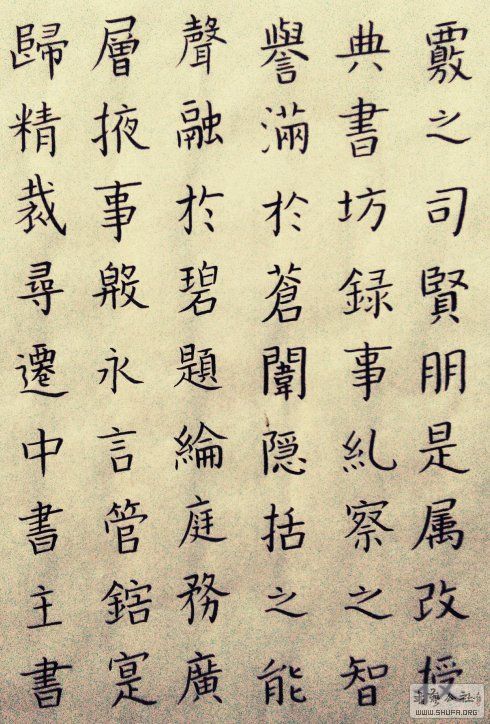 覈之司賢朋是属改授
典書坊録事糺察之智
譽滿於蒼闈隠括之能
聲融於碧題綸庭務廣
層掖事殷永言管鎋寔
歸精裁尋遷中書主書
WWW.SHUFA.ORG